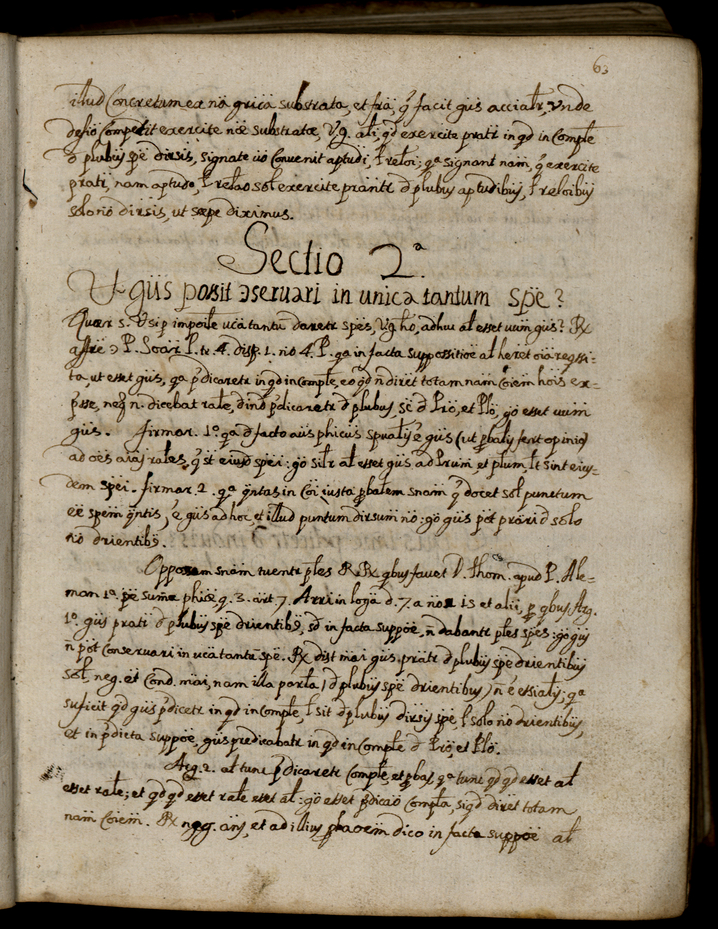 63
illud Concretum ex nā gricā substrata, et frā, q̄ facit gūs acciatr, Vnde
defiō Competit exercite nōe substratæ, Vg. ali, qd exercite pratr in qd in Comple
d plubus spē dirsis, signate uō Conuenit aptudi, ł reloi; qa signant nam, q̄ exercite
pratr, nam aptudo, ł relao sol exercite prantr d plubus aptudibus, ł reloibus
solo nō dirsis, ut sæpe diximus.
Sectio 2.a
Vt gūs possit ɔseruari in unica tantum spē?
Quær s. Vsi p impoile ucā tantū daretr spēs, Vg. hō, adhuc al esset uum gūs? Rx
affre ɔ P. Soar P. te. 4. disp. 1. nō 4. P. qa in facta suppositiōe al heret oia reqssi=
ta, ut esset gūs, qa p̄dicaretr in qd in Comple, eo qd n̄ diret totam nam Coiem hōis ex=
p̄sse, neq̄ n. dicebat rale, dind p̄dicaretr d plubus, sē d Prō, et Plō, gō esset uum
gūs. firmar. 1.o qa d facto aūs phicus spualis ē gūs (ut pbalis fert opinio)
ad oēs aīas rales, q̄ st eiusd spēi: gō silr al esset gūs ad Prum, et plum, lt sint eius-
dem spēi. firmar. 2. qa q̄ntas in Coi iusta pbalem snam q̄ docet sol punctum
ēē spēm q̄ntis, ē gūs ad hoc, et illud puntum dirsum nō: gō gūs pōt prari d solo
nō drientibs.
Opposam snam tuentr p̄les RR. quibus fauet D. Thom. apud P. Ale=
man 1a. pē sumæ phicæ q. 3. art. 7. Arri in loja d. 7. a nōe 15 et alii, p quibus Arg.
1.o gūs pratr d plubus spē drientibs, sd in facta suppōe, n̄ dabantr p̄les spēs: gō gūs
n̄ pōt Conseruari in ucā tantū spē. Rx dist mai gūs pratr d plubus spē drientibus
sol, neg. et Cond. mai, nam illa porla (d plubus spē drientibus) n̄ ē etsialis; qa
suficit qd gūs p̄dicetr in qd in Comple, ł sit d plubus dirsis spē, ł solo nō drientibus,
et in p̄dicta suppōe, gūs predicabatr in qd in Comple d Prō, et Plō.
Arg. 2. al tunc p̄dicaretr Comple, et pbas, qa tunc qd qd esset al
esset rale; et qd qd esset rale esset al: gō esset p̄dicaō Compla, siqd diret totam
nam Coiem. Rx neg. ans, et ad illius pbaoem dico in facta suppōe al